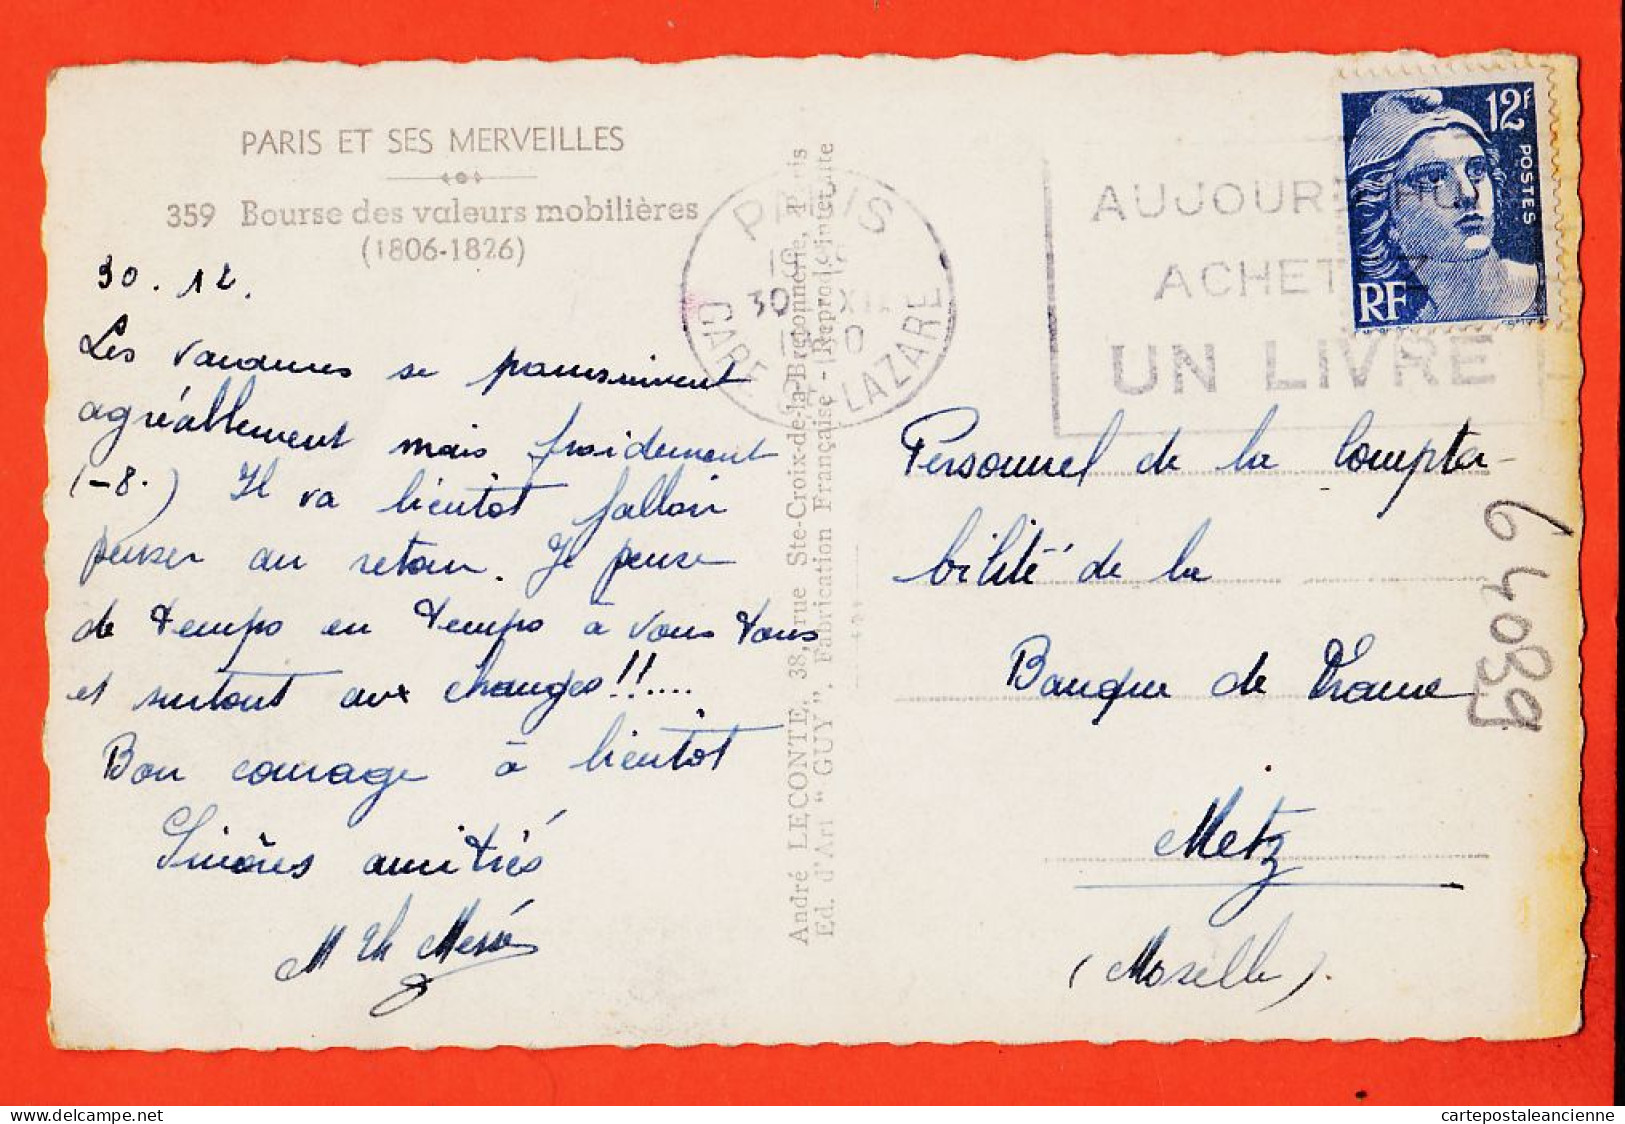 PARIS ET SES MERVEILLES
359 Bourse des valeurs mobilières
(1806-1826)
30.12.
Les vacances se poursuivent
agréablement mais froidement
(-8.) Il va bientôt falloir
penser au retour. Je pense
de temps en temps à vous tous
et surtout aux changes!!....
Bon courage à bientôt
Sincères amitiés
M Th
André LECONTE, 38, rue Ste-Croix-de-la-Bretonnerie, Paris
Ed. d'Art "GUY", Fabrication Française - Reprod. interdite
PARIS
30 XII
GARE ST LAZARE
AUJOURD'HUI
ACHETEZ
UN LIVRE
12F
POSTES
RF
Personnel de la Compta-
bilité de la
Banque de France
Metz
(Moselle).
64039
cartepostaleancienne